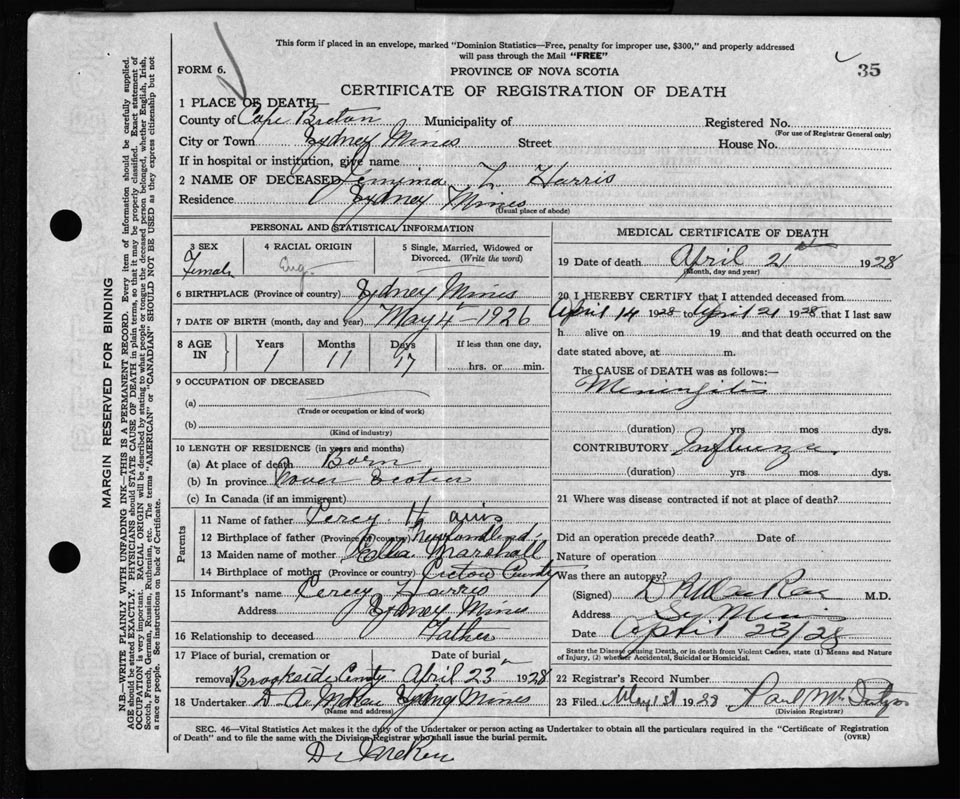 This form if placed in an envelope, marked "Dominion Statistics—Free, penalty for improper use, $300," and properly addressed
will pass through the Mail "FREE"
FORM 6.
PROVINCE OF NOVA SCOTIA
35
CERTIFICATE OF REGISTRATION OF DEATH
1 PLACE OF DEATH—
County of Cape Breton Municipality of Registered No.
(For use of Registrar General only)
City or Town Sydney Mines Street House No.
If in hospital or institution, give name
2 NAME OF DECEASED Jemima L. Harris
Residence Sydney Mines
(Usual place of abode)
PERSONAL AND STATISTICAL INFORMATION
3 SEX 4 RACIAL ORIGIN 5 Single, Married, Widowed or
Divorced. (Write the word)
Female Eng.
6 BIRTHPLACE (Province or country) Sydney Mines
7 DATE OF BIRTH (month, day and year) May 4 - 1926
8 AGE IN Years Months Days If less than one day,
1 11 17 hrs. or min.
9 OCCUPATION OF DECEASED
(a)
(Trade or occupation or kind of work)
(b)
(Kind of industry)
10 LENGTH OF RESIDENCE (in years and months)
(a) At place of death Born
(b) In province Nova Scotia
(c) In Canada (if an immigrant)
Parents
11 Name of father Percy Harris
12 Birthplace of father (Province or country) Newfoundland
13 Maiden name of mother Marshall
14 Birthplace of mother (Province or country) County
15 Informant's name Percy Harris
Address Sydney Mines
16 Relationship to deceased Father
17 Place of burial, cremation or Date of burial
removal Brookside April 23 1928
18 Undertaker D. A. Sydney Mines
(Name and address)
MEDICAL CERTIFICATE OF DEATH
19 Date of death April 21 1928
(Month, day and year)
20 I HEREBY CERTIFY that I attended deceased from
April 14 1928 to April 21 1928 that I last saw
h alive on 19 and that death occurred on the
date stated above, at m.
The CAUSE OF DEATH was as follows:—
Meningitis
(duration) yrs mos dys.
CONTRIBUTORY Influenza
(duration) yrs mos dys.
21 Where was disease contracted if not at place of death?
Did an operation precede death? Date of
Nature of operation
Was there an autopsy?
(Signed) M.D.
Address Sy. Mines
Date April 23/28
State the Disease causing Death, or in death from Violent Causes, state (1) Means and Nature
of Injury, (2) whether Accidental, Suicidal or Homicidal.
22 Registrar's Record Number
23 Filed May 1st 1928 Paul
(Division Registrar)
SEC. 46—Vital Statistics Act makes it the duty of the Undertaker or person acting as Undertaker to obtain all the particulars required in the "Certificate of Registration
of Death" and to file the same with the Division Registrar who shall issue the burial permit. (OVER)
Dr
MARGIN RESERVED FOR BINDING
N.B.—WRITE PLAINLY WITH UNFADING INK—THIS IS A PERMANENT RECORD. Every item of information should be carefully supplied.
AGE should be stated EXACTLY. PHYSICIANS should STATE CAUSE OF DEATH in plain terms, so that it may be properly classified. Exact statement of
OCCUPATION is very important. RACIAL ORIGIN will be described by stating to what people or tongue the deceased person belonged, whether English, Irish,
Scotch, French, German, Russian, Ruthenian, etc. The terms "AMERICAN" or "CANADIAN" SHOULD NOT BE USED as they express citizenship but not
a race or people. See instructions on back of Certificate.